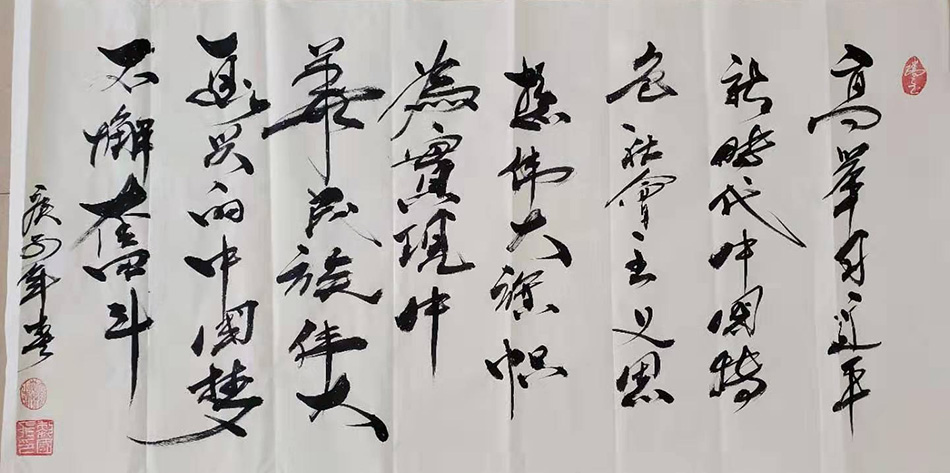 高举习近平
新時代中國特
色社會主义思
想伟大旗帜
為實現中
華民族伟大
复兴的中國梦
不懈奋斗
庚子年春